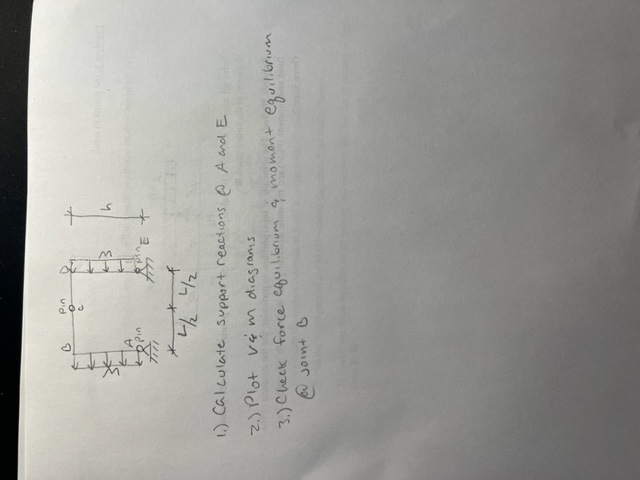 B
Pin
C
D
w
w
h
A
Pin
Pin
E
L/2
L/2
1.) Calculate support reactions @ A and E
2.) Plot V & M diagrams
3.) Check force equilibrium & moment equilibrium
@ Joint B